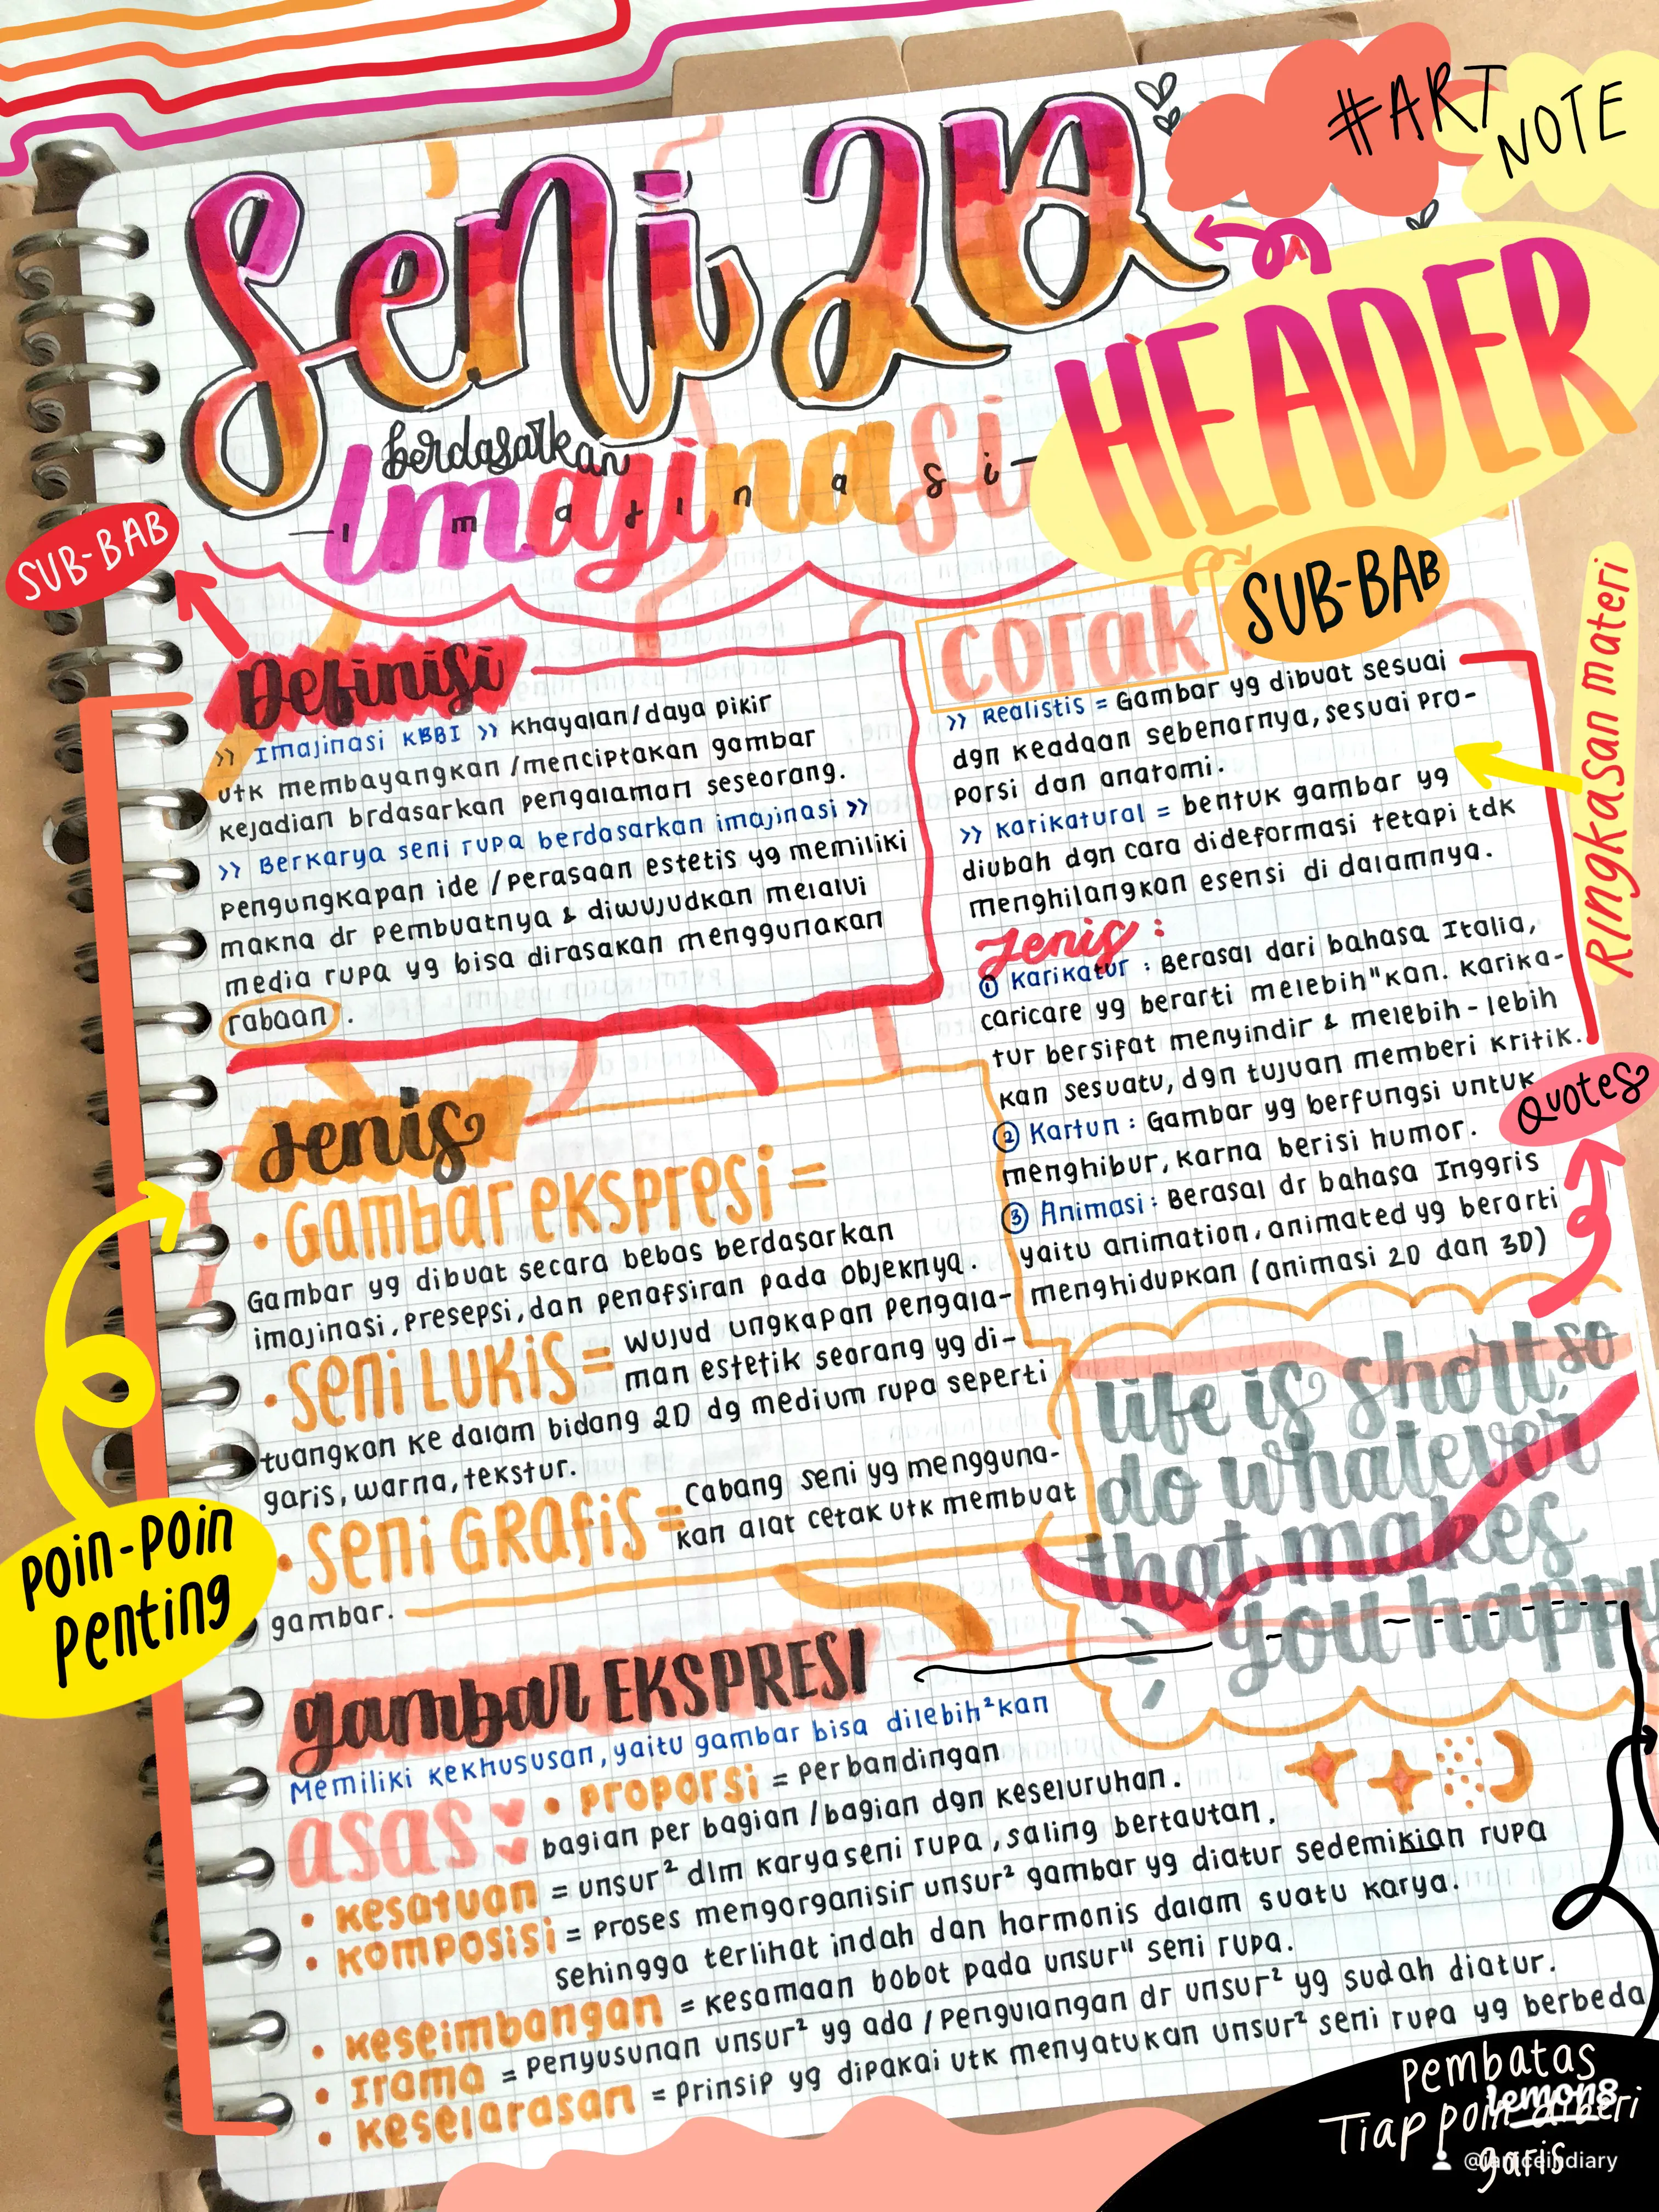 #ART
NOTE
Seni 2D
HEADER
berdasarkan
imajinasi
- i m a j i n a s i -
SUB-BAB
Definisi
>> Imajinasi KBBI >> Khayalan/daya pikir
utk membayangkan/menciptakan gambar
kejadian brdasarkan pengalaman seseorang.
>> Berkarya seni rupa berdasarkan imajinasi >>
pengungkapan ide/perasaan estetis yg memiliki
makna dr pembuatnya & diwujudkan melalui
media rupa yg bisa dirasakan menggunakan
rabaan.
Jenis
• Gambar ekspresi =
Gambar yg dibuat secara bebas berdasarkan
imajinasi, presepsi, dan penafsiran pada objeknya.
• Seni LUKIS = wujud ungkapan pengala-
man estetik seorang yg di-
tuangkan ke dalam bidang 2D dg medium rupa seperti
garis, warna, tekstur.
• Seni GRAFIS = Cabang seni yg mengguna-
kan alat cetak utk membuat
gambar.
Poin-Poin
Penting
SUB-BAB
corak
>> Realistis = Gambar yg dibuat sesuai
dgn keadaan sebenarnya, sesuai pro-
porsi dan anatomi.
>> Karikatural = bentuk gambar yg
diubah dgn cara dideformasi tetapi tdk
menghilangkan esensi di dalamnya.
Jenis :
① Karikatur : Berasal dari bahasa Italia,
caricare yg berarti melebih"kan. Karika-
tur bersifat menyindir & melebih-lebih
kan sesuatu, dgn tujuan memberi kritik.
② Kartun : Gambar yg berfungsi untuk
menghibur, karna berisi humor.
③ Animasi : Berasal dr bahasa Inggris
yaitu animation, animated yg berarti
menghidupkan (animasi 2D dan 3D)
Ringkasan materi
Quotes
life is short, so
do whatever
that makes
you happy
gambar EKSPRESI
Memiliki kekhususan, yaitu gambar bisa dilebih²kan
asas : • proporsi = Perbandingan
bagian per bagian/bagian dgn keseluruhan.
• kesatuan = unsur² dlm karya seni rupa, saling bertautan.
• komposisi = Proses mengorganisir unsur² gambar yg diatur sedemikian rupa
sehingga terlihat indah dan harmonis dalam suatu karya.
• keseimbangan = Kesamaan bobot pada unsur" seni rupa.
• Irama = Penyusunan unsur² yg ada/pengulangan dr unsur² yg sudah diatur.
• keselarasan = Prinsip yg dipakai utk menyatukan unsur² seni rupa yg berbeda
Pembatas
Tiap poin diberi
garis
lemon8
@janiceindiary